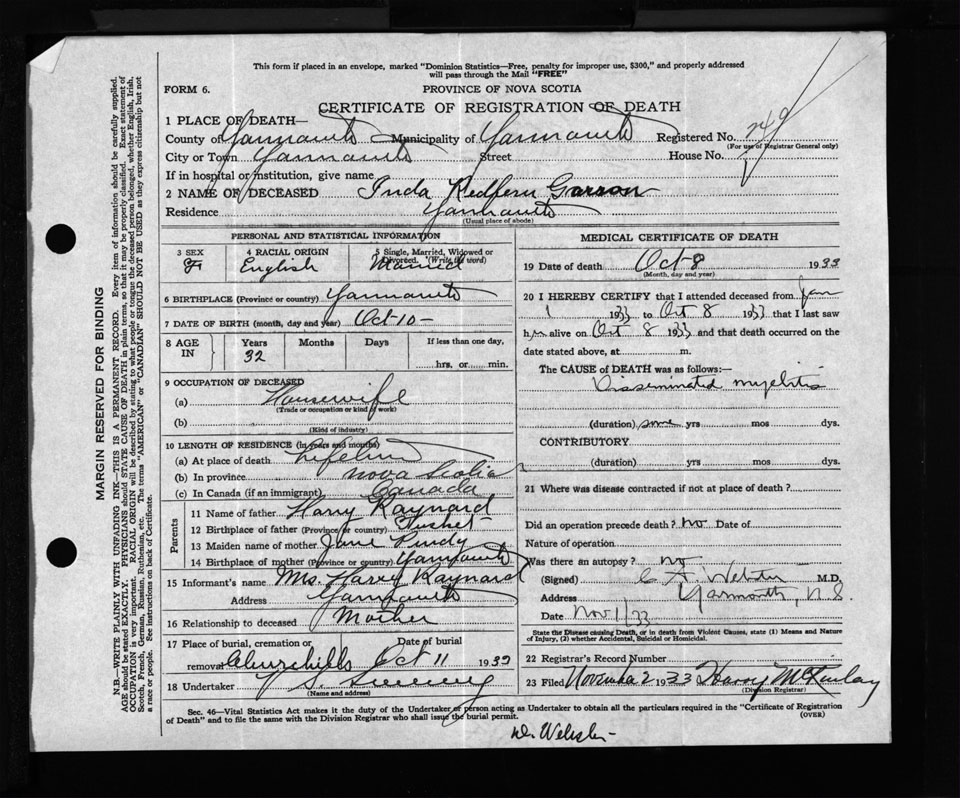 This form if placed in an envelope, marked "Dominion Statistics—Free, penalty for improper use, $300," and properly addressed
will pass through the Mail "FREE"
FORM 6.
PROVINCE OF NOVA SCOTIA
CERTIFICATE OF REGISTRATION OF DEATH
1 PLACE OF DEATH—
County of Yarmouth Municipality of Yarmouth Registered No. 749
(For use of Registrar General only)
City or Town Yarmouth Street House No.
If in hospital or institution, give name
2 NAME OF DECEASED Inda Redfern
Residence Yarmouth
(Usual place of abode)
PERSONAL AND STATISTICAL INFORMATION
3 SEX F
4 RACIAL ORIGIN English
5 Single, Married, Widowed or Divorced. (Write the word) Married
6 BIRTHPLACE (Province or country) Yarmouth
7 DATE OF BIRTH (month, day and year) Oct-10-
8 AGE IN Years Months Days If less than one day,
32 hrs. or min.
9 OCCUPATION OF DECEASED
(a) Housewife
(Trade or occupation or kind of work)
(b)
(Kind of industry)
10 LENGTH OF RESIDENCE (in years and months)
(a) At place of death Lifetime
(b) In province Nova Scotia
(c) In Canada (if an immigrant) Canada
Parents
11 Name of father Harry Raynard
12 Birthplace of father (Province or country) Tusket
13 Maiden name of mother Jane
14 Birthplace of mother (Province or country) Yarmouth
15 Informant's name Mrs. Harry Raynard
Address Yarmouth
16 Relationship to deceased Mother
17 Place of burial, cremation or Date of burial
removal Churchills Oct 11 1933
18 Undertaker V S Sweeny
(Name and address)
MEDICAL CERTIFICATE OF DEATH
19 Date of death Oct-8 1933
(Month, day and year)
20 I HEREBY CERTIFY that I attended deceased from Jan
1 1933 to Oct 8 1933 that I last saw
her alive on Oct 8 1933 and that death occurred on the
date stated above, at m.
The CAUSE of DEATH was as follows:—
Disseminated myelitis
(duration) some yrs mos dys.
CONTRIBUTORY
(duration) yrs mos dys.
21 Where was disease contracted if not at place of death?
Did an operation precede death? no Date of
Nature of operation
Was there an autopsy? no
(Signed) C A Webster M.D.
Address Yarmouth, N.S.
Date Nov 1/33
State the Disease causing Death, or in death from Violent Causes, state (1) Means and Nature
of Injury, (2) whether Accidental, Suicidal or Homicidal.
22 Registrar's Record Number
23 Filed November 2 1933 Harvey McKinlay
(Division Registrar)
Sec. 46—Vital Statistics Act makes it the duty of the Undertaker or person acting as Undertaker to obtain all the particulars required in the "Certificate of Registration
of Death" and to file the same with the Division Registrar who shall issue the burial permit.
(OVER)
Dr Webster
MARGIN RESERVED FOR BINDING
N.B. WRITE PLAINLY WITH UNFADING INK—THIS IS A PERMANENT RECORD. Every item of information should be carefully supplied.
AGE should be stated EXACTLY. PHYSICIANS should STATE CAUSE OF DEATH in plain terms, so that it may be properly classified. Exact statement of
OCCUPATION is very important. RACIAL ORIGIN will be described by stating to what people or tongue the deceased person belonged, whether English, Irish,
Scotch, French, German, Russian, Ruthenian, etc. The terms "AMERICAN" or "CANADIAN" SHOULD NOT BE USED as they express citizenship but not
a race or people. See instructions on back of Certificate.